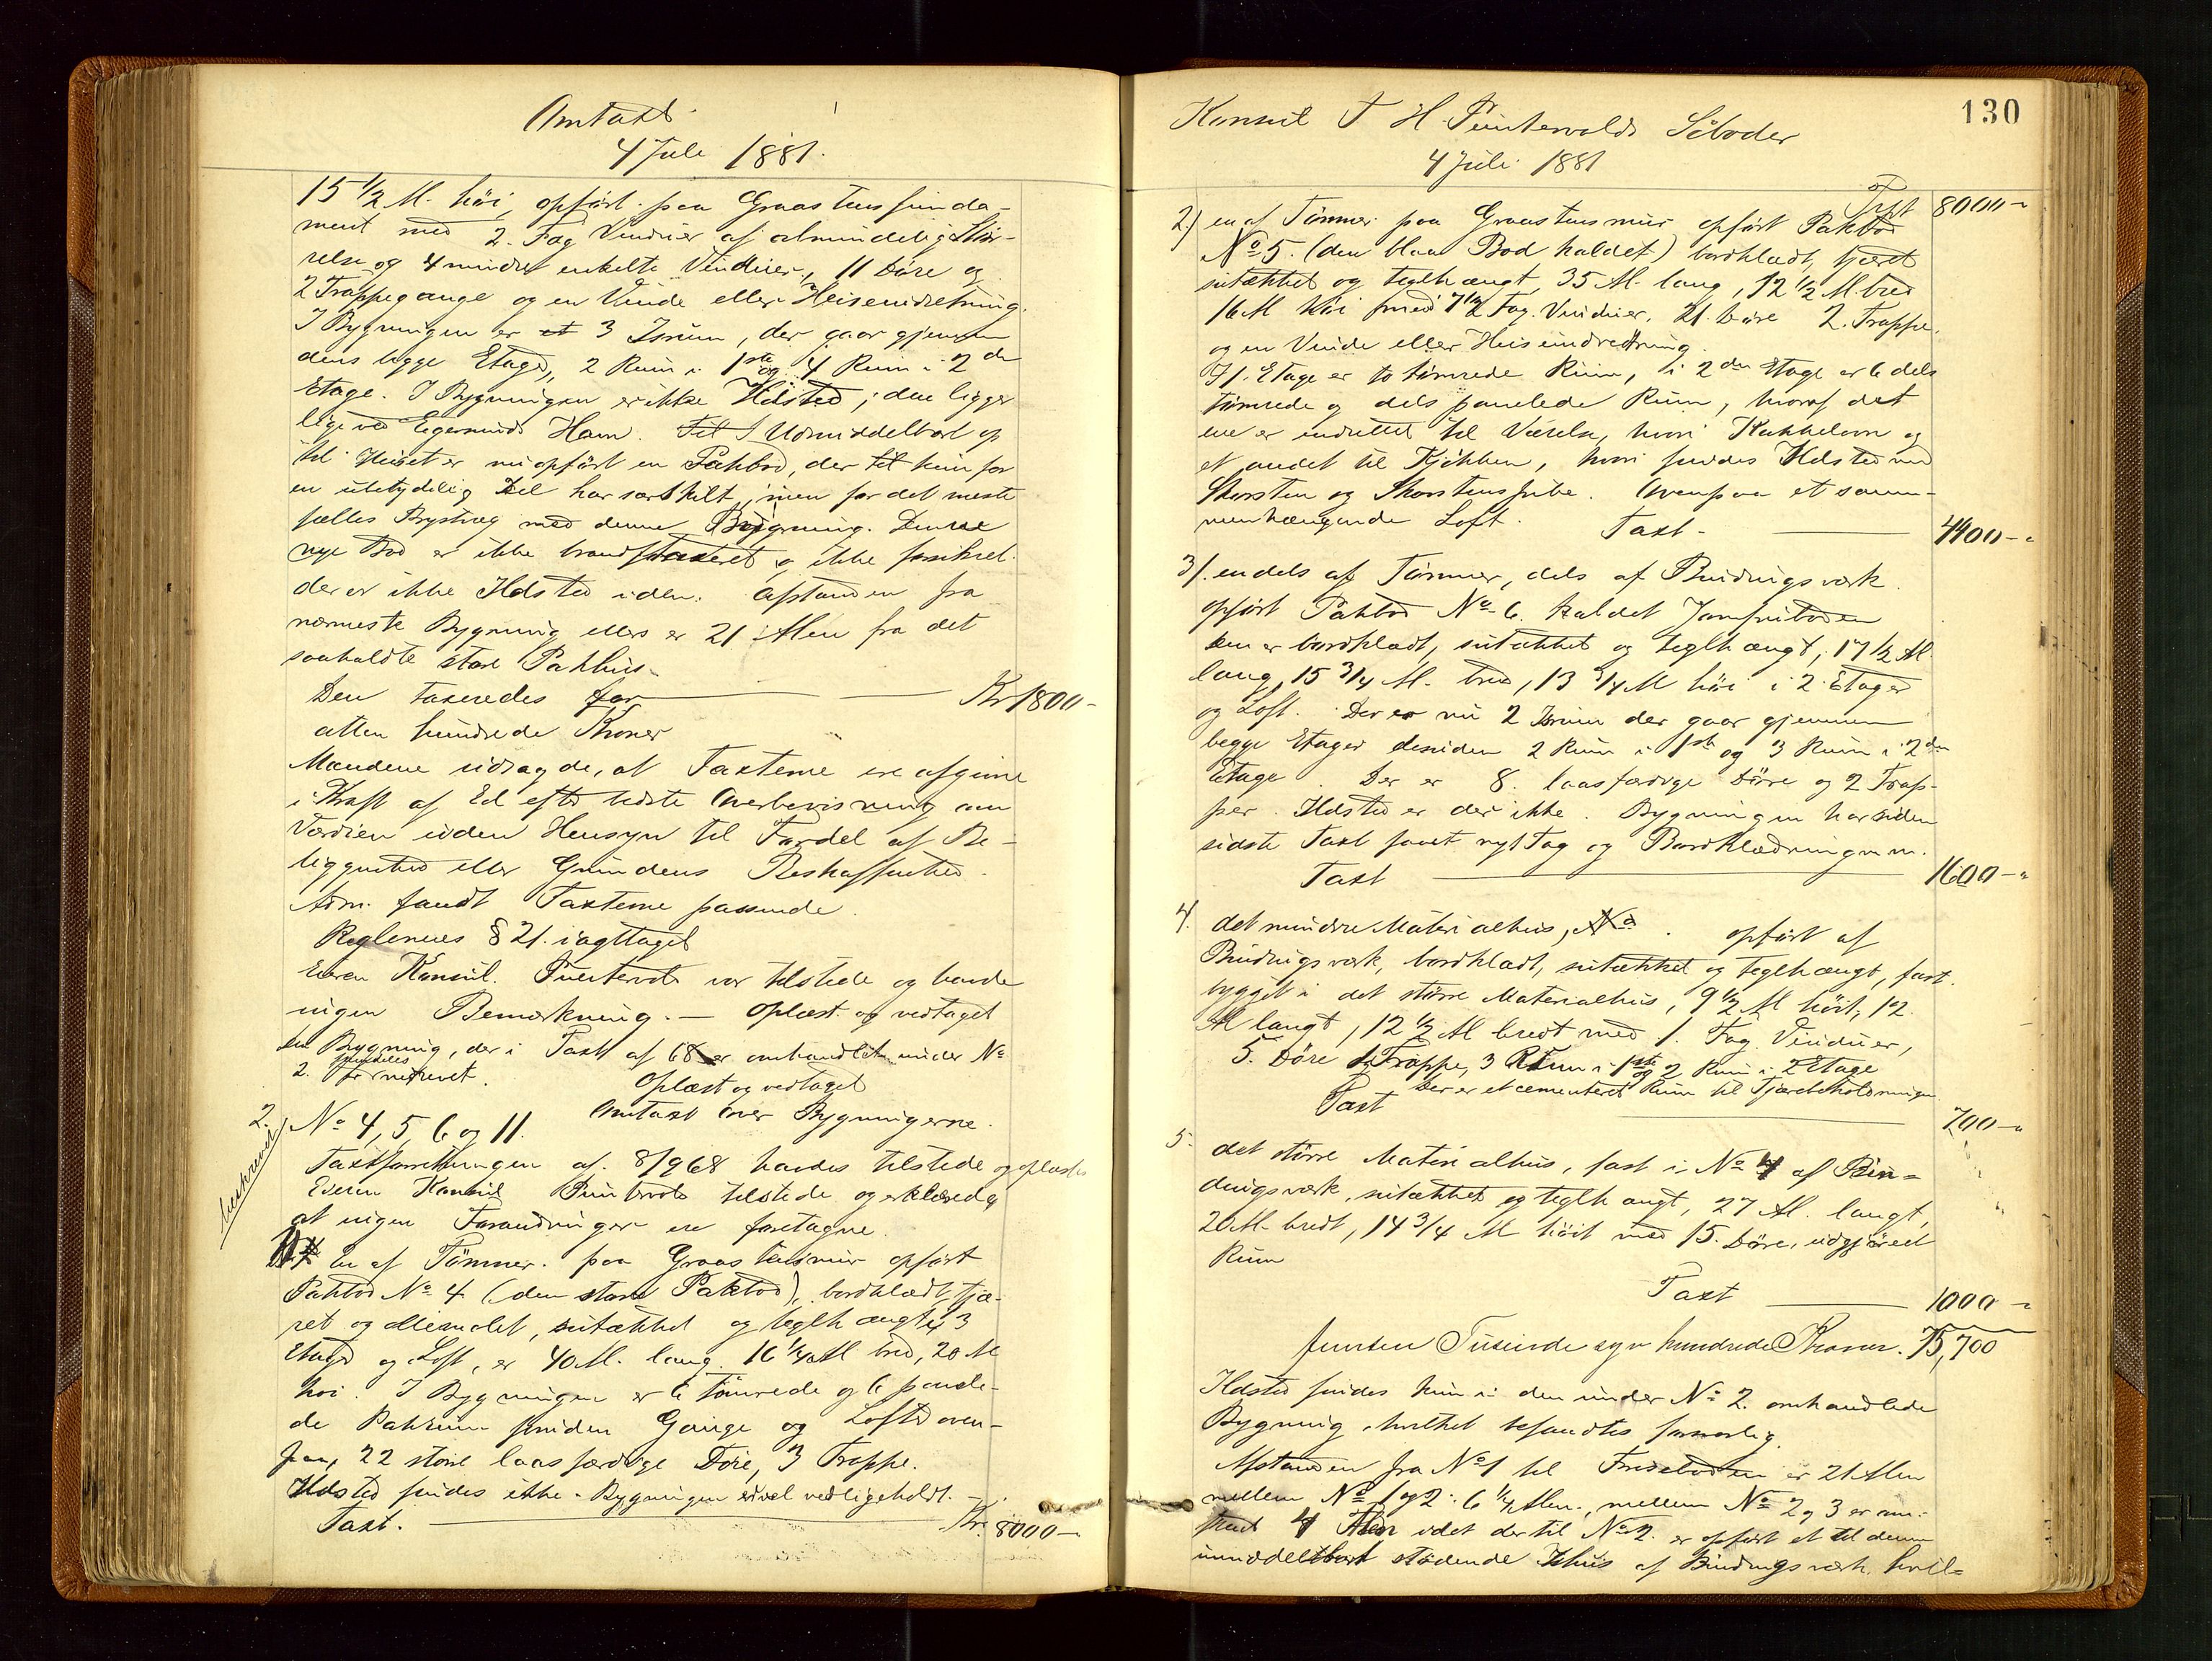 Omtaxt
4 Juli 1881.
15 1/2 Al. höi, opfört paa Graastensfunda-
ment med 2 Fag Vinduer af almindelig Stör-
relse og 4 mindre enkelte Vinduer, 11 Döre og
2 Trappegange og en Vinde eller Heiseindretning.
I Bygningen er et 3 Isrum, der gaar gjennem
dens begge Etager, 2 Rum i 1ste og 4 Rum i 2den
Etage. I Bygningen er ikke Ildsted; den ligger
lige ved Egersunds Havn. Til Umiddelbart op
til Huset er nu opfört en Pakbod, der til kun for
en ubetydelig Del har særskilt, men for det meste
fælles Brystvæg med denne Bygning. Denne
nye Bod er ikke brandtaxeret og ikke forsikret.
der er ikke Ildsted inden. Afstanden fra
nærmeste Bygning ellers er 21 Alen fra det
saakaldte store Pakhus.
Den taxeredes for Kr 1800-
atten hundrede Kroner
Mændene udsagde, at Taxterne ere afgivne
i Kraft af Ed efter bedste Overbevisning om
Værdien uden Hensyn til Fordel af Be-
liggenhed eller Grundens Beskaffenhed.
Adm. fandt Taxterne passende.
Reglernes § 21. iagttaget
Eieren Konsul Puntervold var tilstede og havde
ingen Bemærkning. — Oplæst og vedtaget
den Bygning, der i Taxt af 68 er omhandlet under No
2. er nedrevet.
Oplæst og vedtaget
2. No 4, 5, 6 og 11. Omtaxt over Bygningerne.
beskreven
Taxtforretningen af 8/9 68 havdes tilstede og oplæstes
Eieren Konsul Puntervold tilstede og erklærede
at ingen Forandringer ere foretagne.
En af Tömmer paa Graastensmur opfört
Pakbod No 4 (den store Pakbod), bordklædt, tjæ-
ret og oliemalet, nitækket og teglhængt i 3
Etager og Loft, er 40 Al. lang, 16 1/4 Al bred, 20 Al
höi. I Bygningen er 6 tömrede og 6 panele-
de Pakrum foruden Gange og Loftet oven-
paa, 22 störe laasfærdige Döre, 3 Trapper.
Ildsted findes ikke. Bygningen er vel vedligeholdt.
Taxt. Kr. 8000-
Konsul J H. Puntervolds Söboder 130
4 Juli 1881
Trpt 8000-
2.) en af Tömmer paa Graastensmur opfört Pakbod
No 5. (den blaa Bod kaldet) bordklædt, tjæret
nitækket og teglhængt, 35 Al. lang, 12 1/2 Al. bred
16 Al höi med 7 1/2 Fag Vinduer. 21 Döre 2 Trapper.
og en Vinde eller Heiseindretning.
I 1. Etage er to tömrede Rum, i 2den Etage er 6 dels
tömrede og dels panelede Rum, hvoraf det
ene er indrettet til Værelse, hvori Kakkelovn og
et andet til Kjökken, hvori findes Ildsted med
Skorsten og Skorstenspibe. Ovenpaa et sam-
menhængende Loft. Taxt 4400-
3). en dels af Tömmer, dels af Bindingsværk
opfört Pakbod No 6. kaldet Jomfruboden
den er bordklædt, nitækket og teglhængt, 17 1/2 Al
lang, 15 3/4 Al. bred, 13 3/4 Al höi i 2 Etager
og Loft. Der er nu 2 Isrum der gaar gjennem
begge Etager desuden 2 Rum i 1ste og 3 Rum i 2den
Etage. Der er 8 laasfærdige Döre og 2 Trap-
per. Ildsted er der ikke. Bygningen har siden
sidste Taxt faaet nyt Tag og Bordklædning m m.
Taxt 1600-
4. det mindre Materialhus, No . opfört af
Bindingsværk, bordklædt, nitækket og teglhængt, fast-
bygget i det större Materialhus, 9 1/2 Al höit, 12
Al langt, 12 1/2 Al bredt med 1. Fag Vinduer,
5. Döre 1 Trappe, 3 Rum i 1ste og 2 Rum i 2 Etage
der er et cementeret Rum til Tjærebeholdningen
Taxt 700-
5. det större Materialhus, fast i No 4 af Bin-
dingsværk, nitækket og teglhængt, 27 Al. langt,
20 Al. bredt, 14 3/4 Al höit med 15. Döre, udgjör eet
Rum
Taxt 1000-
femten Tusinde syv hundrede Kroner. 15,700
Ildsted findes kun i den under No 2. omhandlede
Bygning, hvilket befandtes forsvarlig.
Afstanden fra No 1 til Fredeboden er 21 Alen
mellem No 1 og 2: 6 1/4 Alen, mellem No 2 og 3 er om-
trent 4 Alen idet der til No 2. er opfört et til den
umiddelbart stödende Ishus af Bindingsværk, hvil-